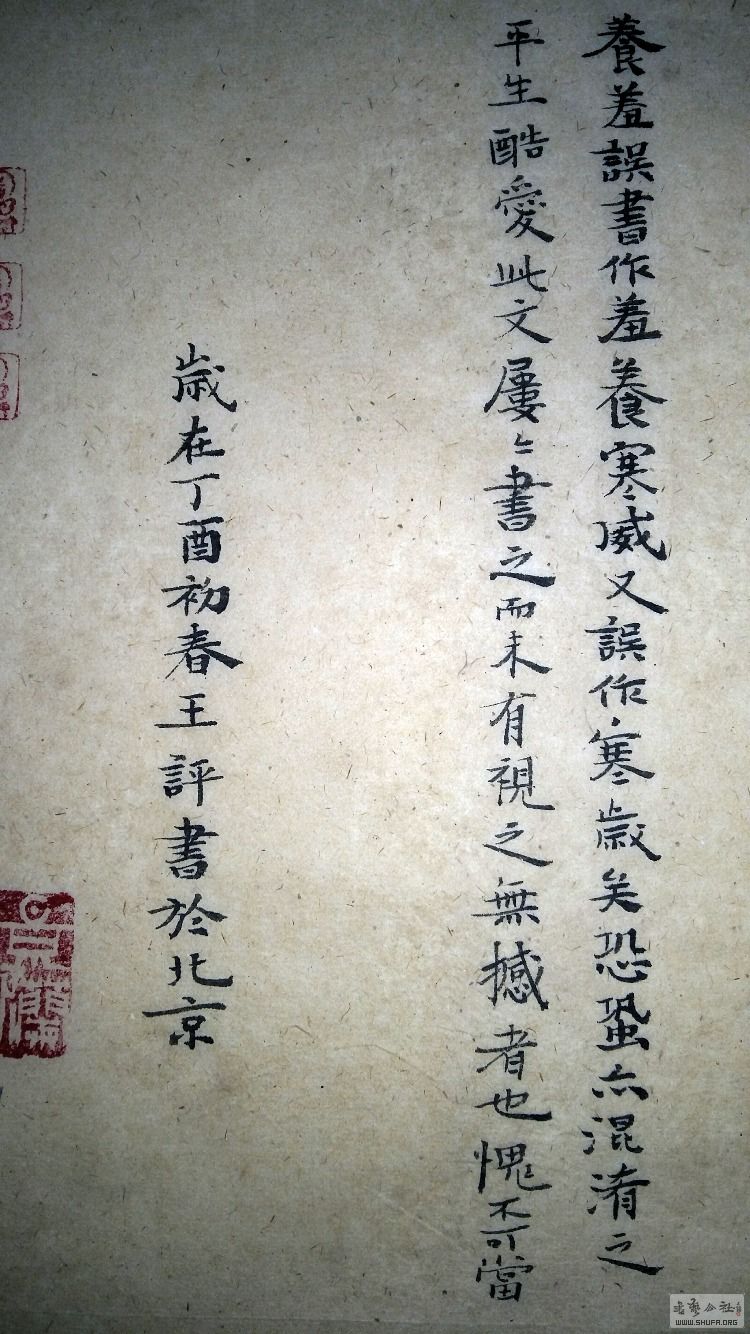 養羞誤書作羞養寒威又誤作寒歲矣恐蛩亦混淆之
平生酷愛此文屢〻書之而未有視之無撼者也愧不可當
歲在丁酉初春王評書於北京
WWW.SHUFA.ORG